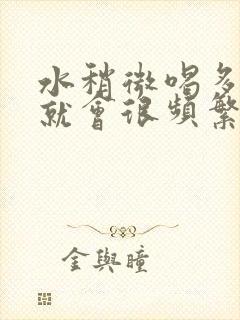 水稍微喝多
就會很頻繁
金與瞳